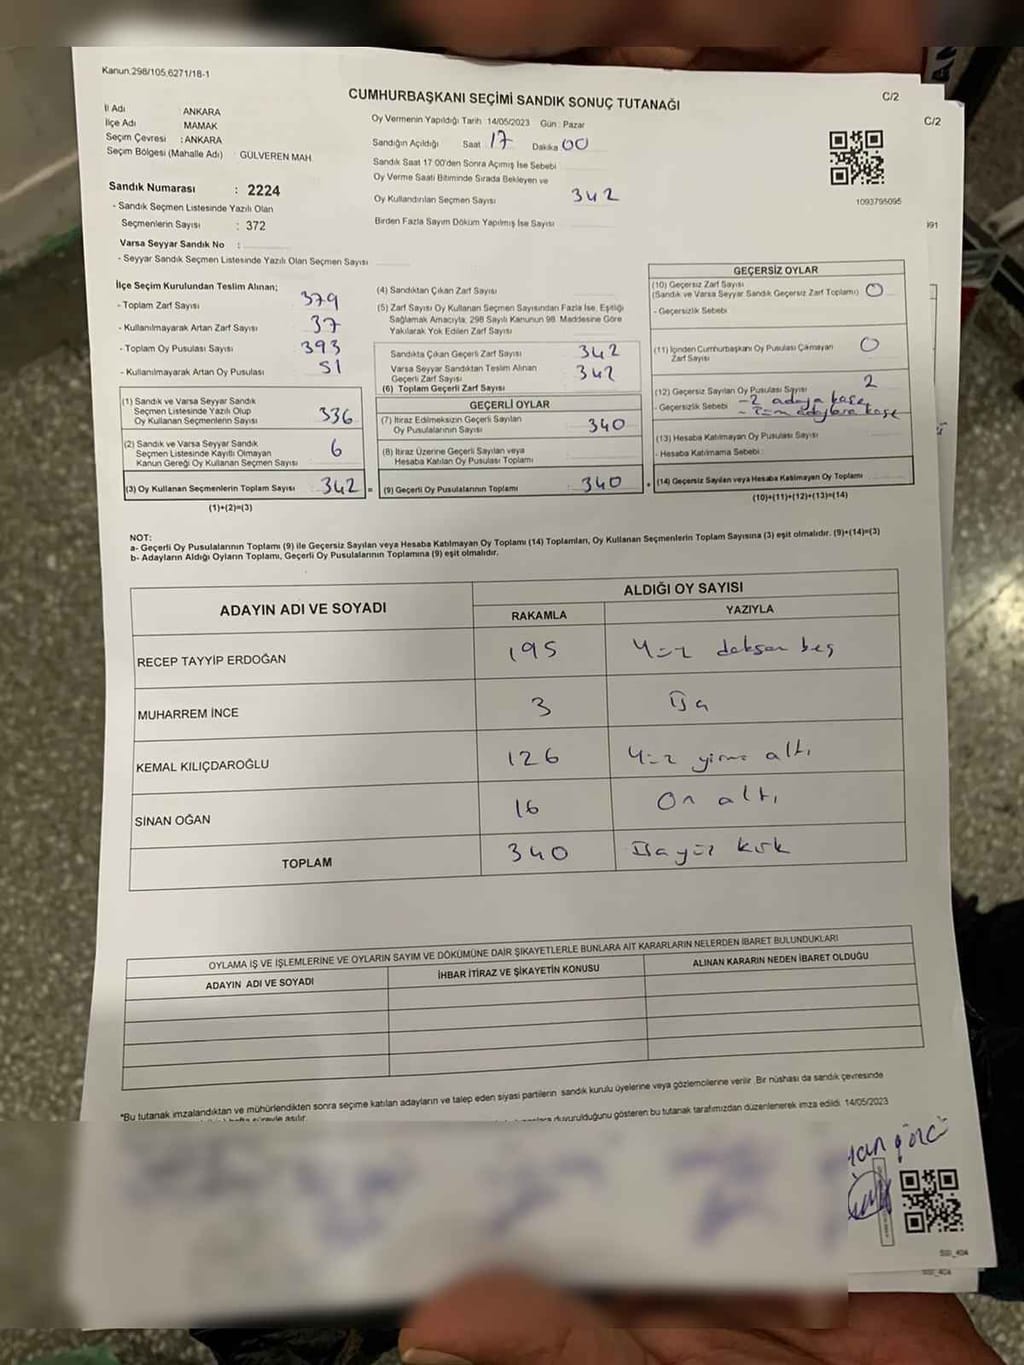 Kanun.298/105.6271/18-1
CUMHURBAŞKANI SEÇİMİ SANDIK SONUÇ TUTANAĞI
C/2
C/2
İl Adı : ANKARA
İlçe Adı : MAMAK
Seçim Çevresi : ANKARA
Seçim Bölgesi (Mahalle Adı) : GÜLVEREN MAH.
Oy Vermenin Yapıldığı Tarih :14/05/2023 Gün : Pazar
Sandığın Açıldığı Saat 17 Dakika 00
Sandık Saat 17:00'den Sonra Açımış İse Sebebi
Oy Verme Saati Bitiminde Sırada Bekleyen ve
Oy Kullandırılan Seçmen Sayısı 342
Birden Fazla Sayım Döküm Yapılmış İse Sayısı
1093795095
Sandık Numarası : 2224
- Sandık Seçmen Listesinde Yazılı Olan
Seçmenlerin Sayısı : 372
Varsa Seyyar Sandık No :
- Seyyar Sandık Seçmen Listesinde Yazılı Olan Seçmen Sayısı
İlçe Seçim Kurulundan Teslim Alınan;
- Toplam Zarf Sayısı 379
- Kullanılmayarak Artan Zarf Sayısı 37
- Toplam Oy Pusulası Sayısı 393
- Kullanılmayarak Artan Oy Pusulası 51
(1) Sandık ve Varsa Seyyar Sandık
Seçmen Listesinde Yazılı Olup
Oy Kullanan Seçmenlerin Sayısı 336
(2) Sandık ve Varsa Seyyar Sandık
Seçmen Listesinde Kayıtlı Olmayan
Kanun Gereği Oy Kullanan Seçmen Sayısı 6
(3) Oy Kullanan Seçmenlerin Toplam Sayısı 342 =
(1)+(2)=(3)
(4) Sandıktan Çıkan Zarf Sayısı
(5) Zarf Sayısı Oy Kullanan Seçmen Sayısından Fazla İse, Eşitliği
Sağlamak Amacıyla, 298 Sayılı Kanunun 98. Maddesine Göre
Yakılarak Yok Edilen Zarf Sayısı
Sandıkta Çıkan Geçerli Zarf Sayısı 342
Varsa Seyyar Sandıktan Teslim Alınan
Geçerli Zarf Sayısı 342
(6) Toplam Geçerli Zarf Sayısı
GEÇERLİ OYLAR
(7) İtiraz Edilmeksizin Geçerli Sayılan
Oy Pusulalarının Sayısı 340
(8) İtiraz Üzerine Geçerli Sayılan veya
Hesaba Katılan Oy Pusulası Toplamı
(9) Geçerli Oy Pusulalarının Toplamı 340 +
GEÇERSİZ OYLAR
(10) Geçersiz Zarf Sayısı
(Sandık ve Varsa Seyyar Sandık Geçersiz Zarf Toplamı) 0
- Geçersizlik Sebebi
(11) İçinden Cumhurbaşkanı Oy Pusulası Çıkmayan
Zarf Sayısı 0
(12) Geçersiz Sayılan Oy Pusulası Sayısı 2
- Geçersizlik Sebebi -2 adaya kaşe
- Tüm adaylara kaşe
(13) Hesaba Katılmayan Oy Pusulası Sayısı
- Hesaba Katılmama Sebebi :
(14) Geçersiz Sayılan veya Hesaba Katılmayan Oy Toplamı
(10)+(11)+(12)+(13)=(14)
NOT:
a- Geçerli Oy Pusulalarının Toplamı (9) ile Geçersiz Sayılan veya Hesaba Katılmayan Oy Toplamı (14) Toplamları, Oy Kullanan Seçmenlerin Toplam Sayısına (3) eşit olmalıdır. (9)+(14)=(3)
b- Adayların Aldığı Oyların Toplamı, Geçerli Oy Pusulalarının Toplamına (9) eşit olmalıdır.
ADAYIN ADI VE SOYADI
ALDIĞI OY SAYISI
RAKAMLA YAZIYLA
RECEP TAYYİP ERDOĞAN 195 Yüz doksan beş
MUHARREM İNCE 3 Üç
KEMAL KILIÇDAROĞLU 126 Yüz yirmi altı
SİNAN OĞAN 16 On altı
TOPLAM 340 Üçyüz kırk
OYLAMA İŞ VE İŞLEMLERİNE VE OYLARIN SAYIM VE DÖKÜMÜNE DAİR ŞİKAYETLERLE BUNLARA AİT KARARLARIN NELERDEN İBARET BULUNDUKLARI
ADAYIN ADI VE SOYADI İHBAR İTİRAZ VE ŞİKAYETİN KONUSU ALINAN KARARIN NEDEN İBARET OLDUĞU
*Bu tutanak imzalandıktan ve mühürlendikten sonra seçime katılan adayların ve talep eden siyasi partilerin sandık kurulu üyelerine veya gözlemcilerine verilir. Bir nüshası da sandık çevresinde
duyurulduğunu gösteren bu tutanak tarafımızdan düzenlenerek imza edildi. 14/05/2023
SSI_404